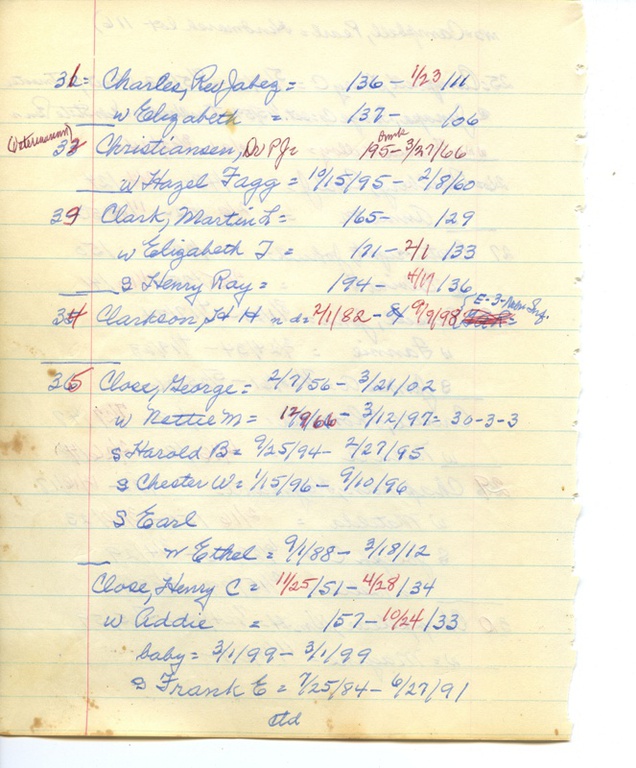 31= Charles, Rev Jabez = /36 - 1/23/11
w Elizabeth = /37- /06
(Veterinarian)
32 Christiansen, Dr P J= /95-3/27/66
w Hazel Fagg = 10/15/95 - 2/8/60
39 Clark, Martin L= /65- /29
w Elizabeth J = /71 - 2/1/33
S Henry Ray = /94 - 4/17/36
E-3-
34 Clarkson, H H n d= 2/1/82 - 9/9/98
35 Close, George = 2/7/56 - 3/21/02
w Nettie M = 12/9/66 - 3/12/97= 30-3-3
S Harold B= 9/25/94- 2/27/95
S Chester W= 1/15/96 - 9/10/96
S Earl
w Ethel = 9/1/88 - 3/18/12
Close, Henry C = 11/25/51 - 4/28/34
w Addie /57- 10/24/33
baby = 3/1/99 - 3/1/99
S Frank E = 7/25/84 - 6/27/91